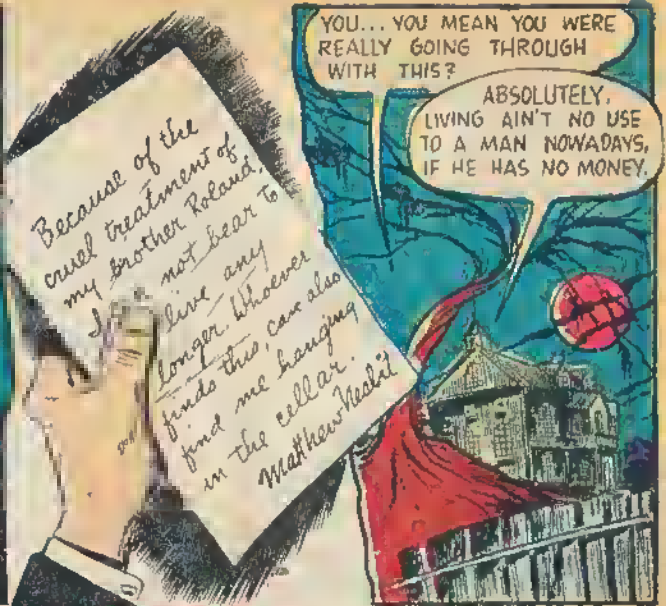 Because of the
cruel treatment of
my brother Roland,
I not bear to
live any
longer. Whoever
finds this, can also
find me hanging
in the cellar.
Matthew Nesbit
YOU... YOU MEAN YOU WERE
REALLY GOING THROUGH
WITH THIS?
ABSOLUTELY.
LIVING AIN'T NO USE
TO A MAN NOWADAYS,
IF HE HAS NO MONEY.